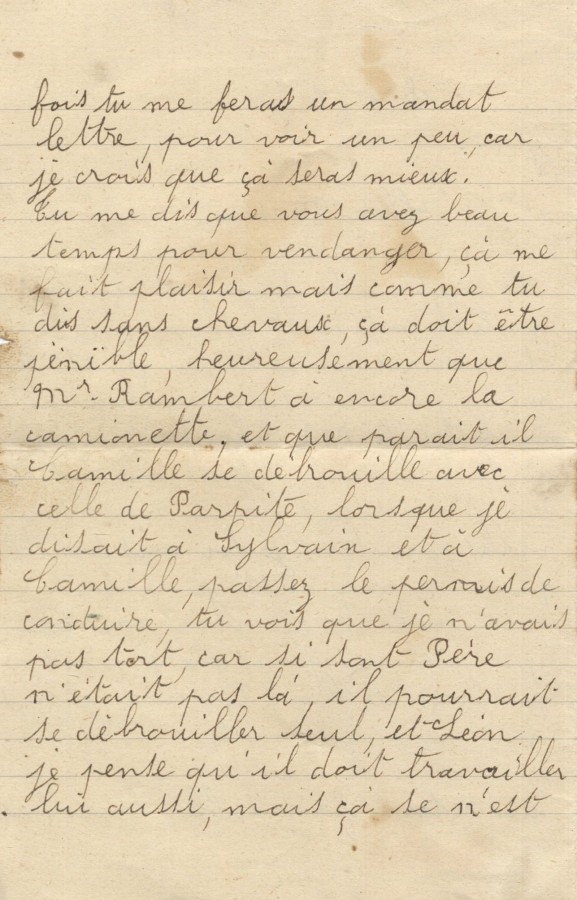 fois tu me feras un mandat
lettre, pour voir un peu, car
je crois que çà seras mieux.
Tu me dis que vous avez beau
temps pour vendanger, çà me
fait plaisir mais comme tu
dis sans chevaux, çà doit être
pènible, heureusement que
Mr. Rambert à encore la
camionette, et que parait il
Camille se debrouille avec
celle de Parpite, lorsque jè
disait à Sylvain et à
Camille, passez le permis de
conduire, tu vois que jè n'avais
pas tort, car si sont Père
n'était pas là, il pourrait
se dèbrouiller seul, et Lèon
je pense qu'il doit travailler
lui aussi, mais çà se n'est